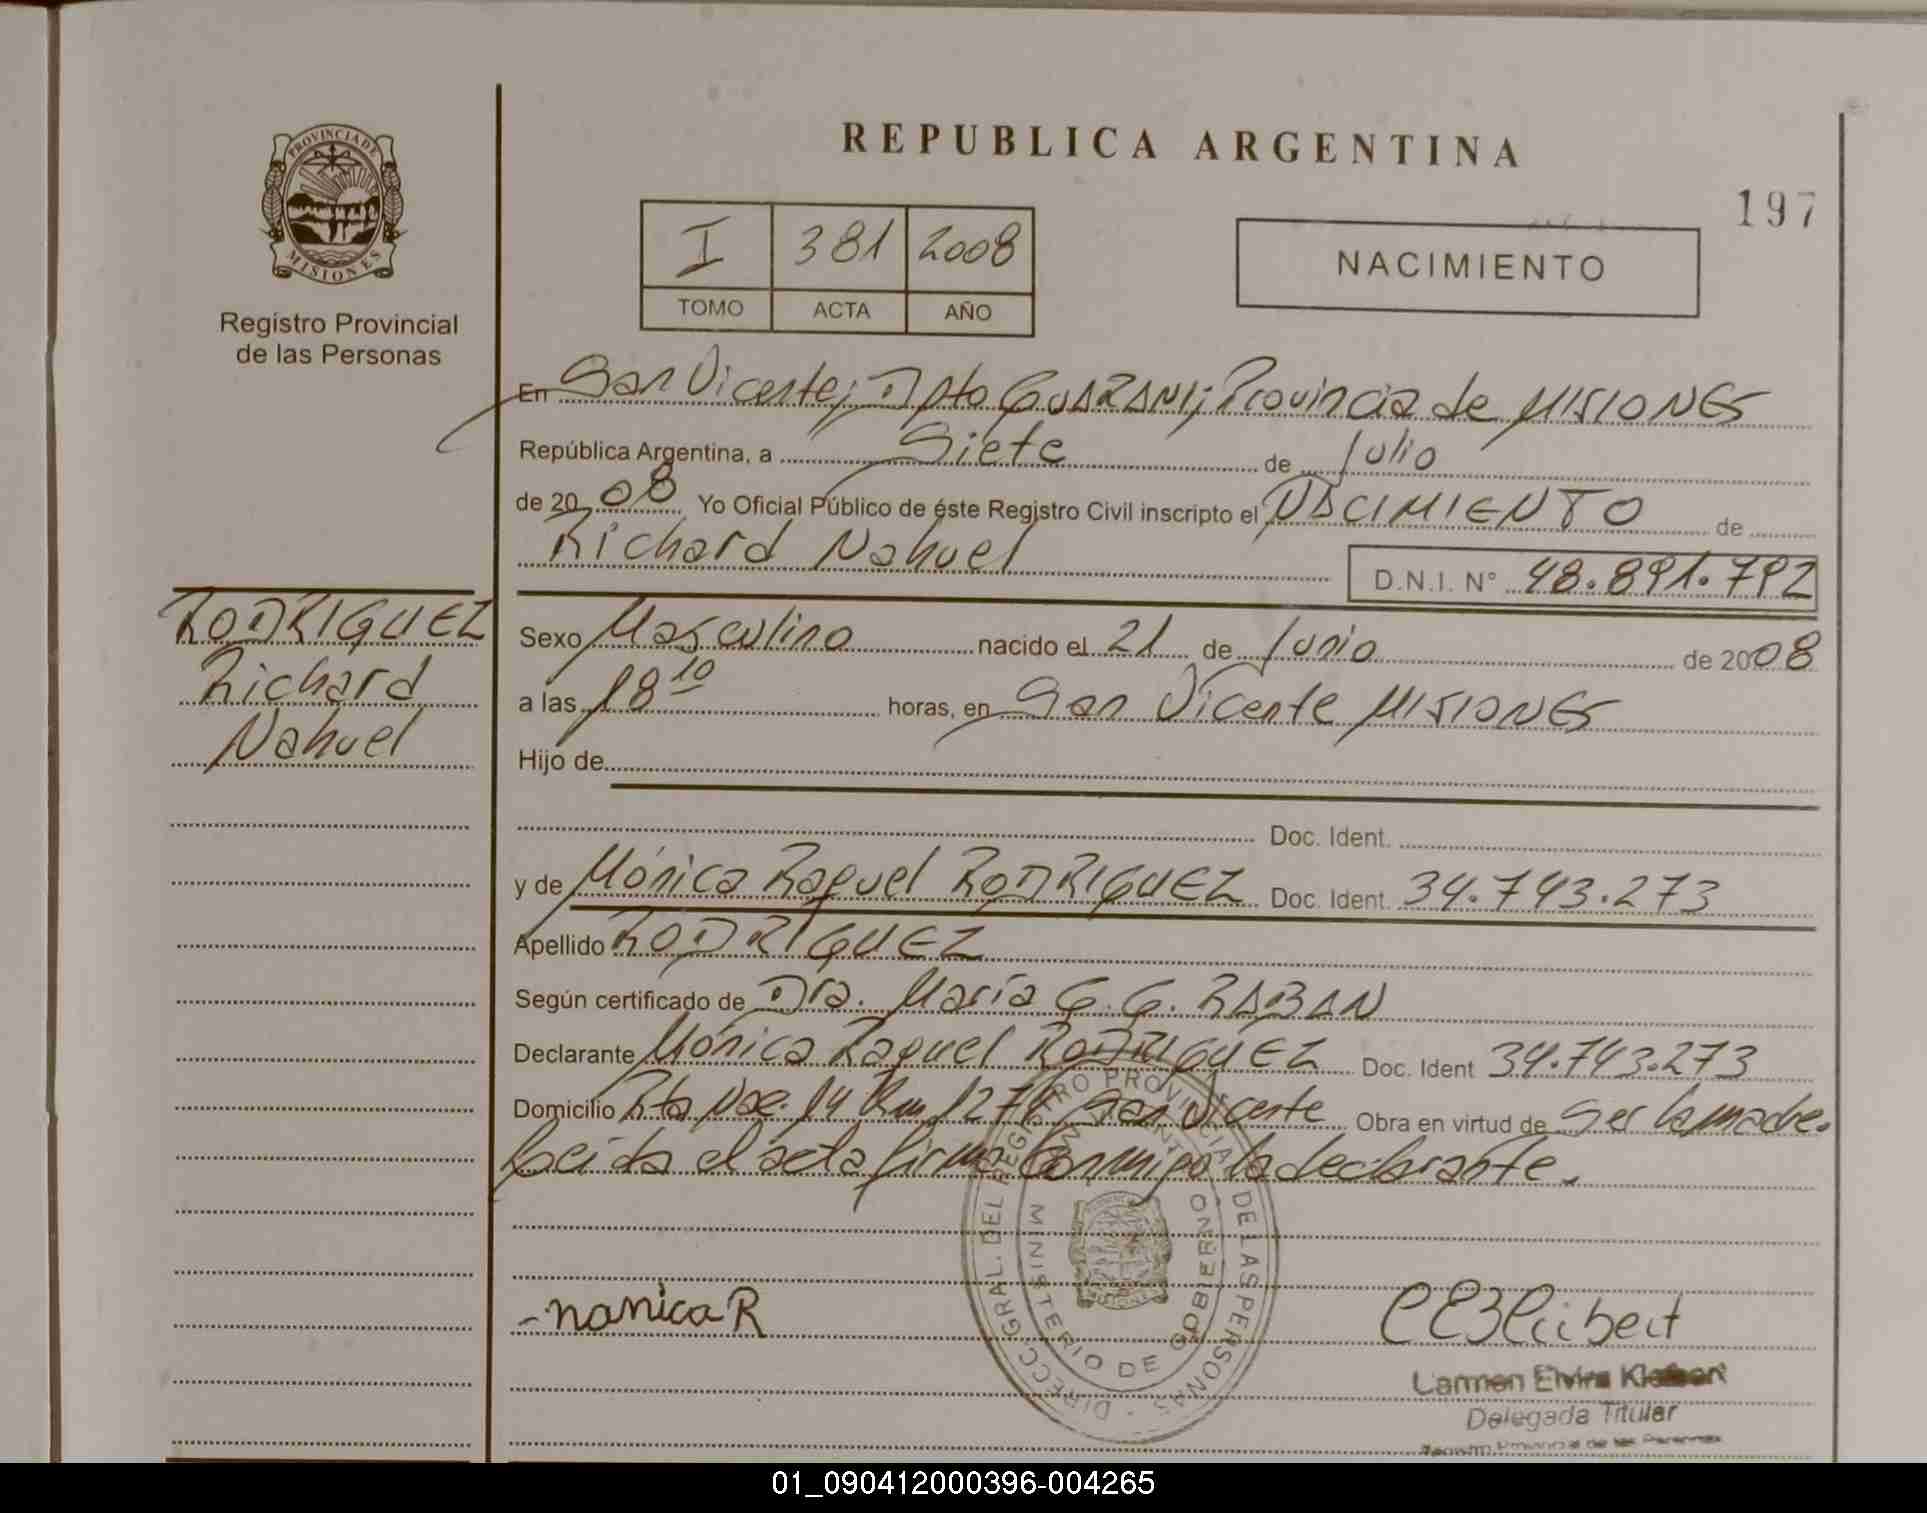 PROVINCIA DE
MISIONES
Registro Provincial
de las Personas
RODRIGUEZ
Richard
Nahuel
REPUBLICA ARGENTINA
197
I 381 2008
TOMO ACTA AÑO
NACIMIENTO
En San Vicente; Dpto GUARANI; Provincia de MISIONES
República Argentina, a Siete de Julio
de 2008 Yo Oficial Público de éste Registro Civil inscripto el NACIMIENTO de
Richard Nahuel D.N.I. N° 48.891.792
Sexo Masculino nacido el 21 de Junio de 2008
a las 18 10 horas, en San Vicente MISIONES
Hijo de
Doc. Ident.
y de Mónica Raquel RODRIGUEZ Doc. Ident. 34.743.273
Apellido RODRIGUEZ
Según certificado de Dra. María G. G. RABAN
Declarante Mónica Raquel RODRIGUEZ Doc. Ident 34.743.273
Domicilio Rta Nac. 14 Km 1271 San Vicente Obra en virtud de ser la madre.
Leida el acta firma conmigo la declarante.
DIRECC. GRAL. DEL REGISTRO PROVINCIAL DE LAS PERSONAS
MINISTERIO DE GOBIERNO
- nanica R
Carmen Elvira
Delegada Titular
Registro Provincial de las Personas
01_090412000396-004265